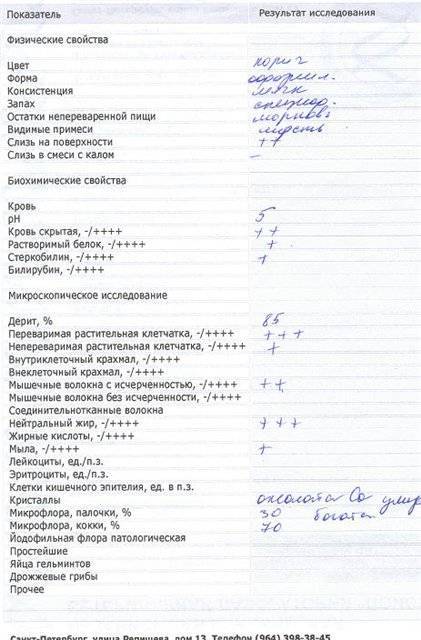 Показатель Результат исследования
Физические свойства
Цвет коричн
Форма оформл.
Консистенция мягк
Запах
Остатки непереваренной пищи морковь
Видимые примеси шерсть
Слизь на поверхности ++
Слизь в смеси с калом –
Биохимические свойства
Кровь
pH 5
Кровь скрытая, -/++++ ++
Растворимый белок, -/++++ +
Стеркобилин, -/++++ +
Билирубин, -/++++
Микроскопическое исследование
Дерит, % 85
Переваримая растительная клетчатка, -/++++ +++
Непереваримая растительная клетчатка, -/++++ +
Внутриклеточный крахмал, -/++++
Внеклеточный крахмал, -/++++
Мышечные волокна с исчерченностью, -/++++ ++
Мышечные волокна без исчерченности, -/++++
Соединительнотканные волокна
Нейтральный жир, -/++++ +++
Жирные кислоты, -/++++
Мыла, -/++++ +
Лейкоциты, ед./п.з.
Эритроциты, ед./п.з.
Клетки кишечного эпителия, ед. в п.з.
Кристаллы оксалаты Ca умер
Микрофлора, палочки, % 30 богатая
Микрофлора, кокки, % 70
Йодофильная флора патологическая
Простейшие
Яйца гельминтов
Дрожжевые грибы
Прочее
Санкт-Петербург, улица Репищева, дом 13. Телефон (964) 398-38-45